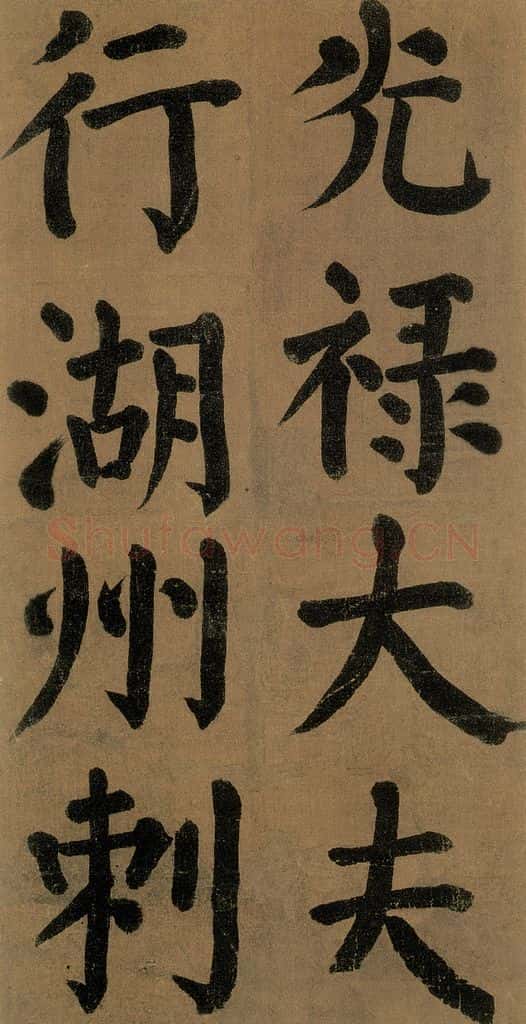 光禄大夫
行湖州刺
Shufawang.CN